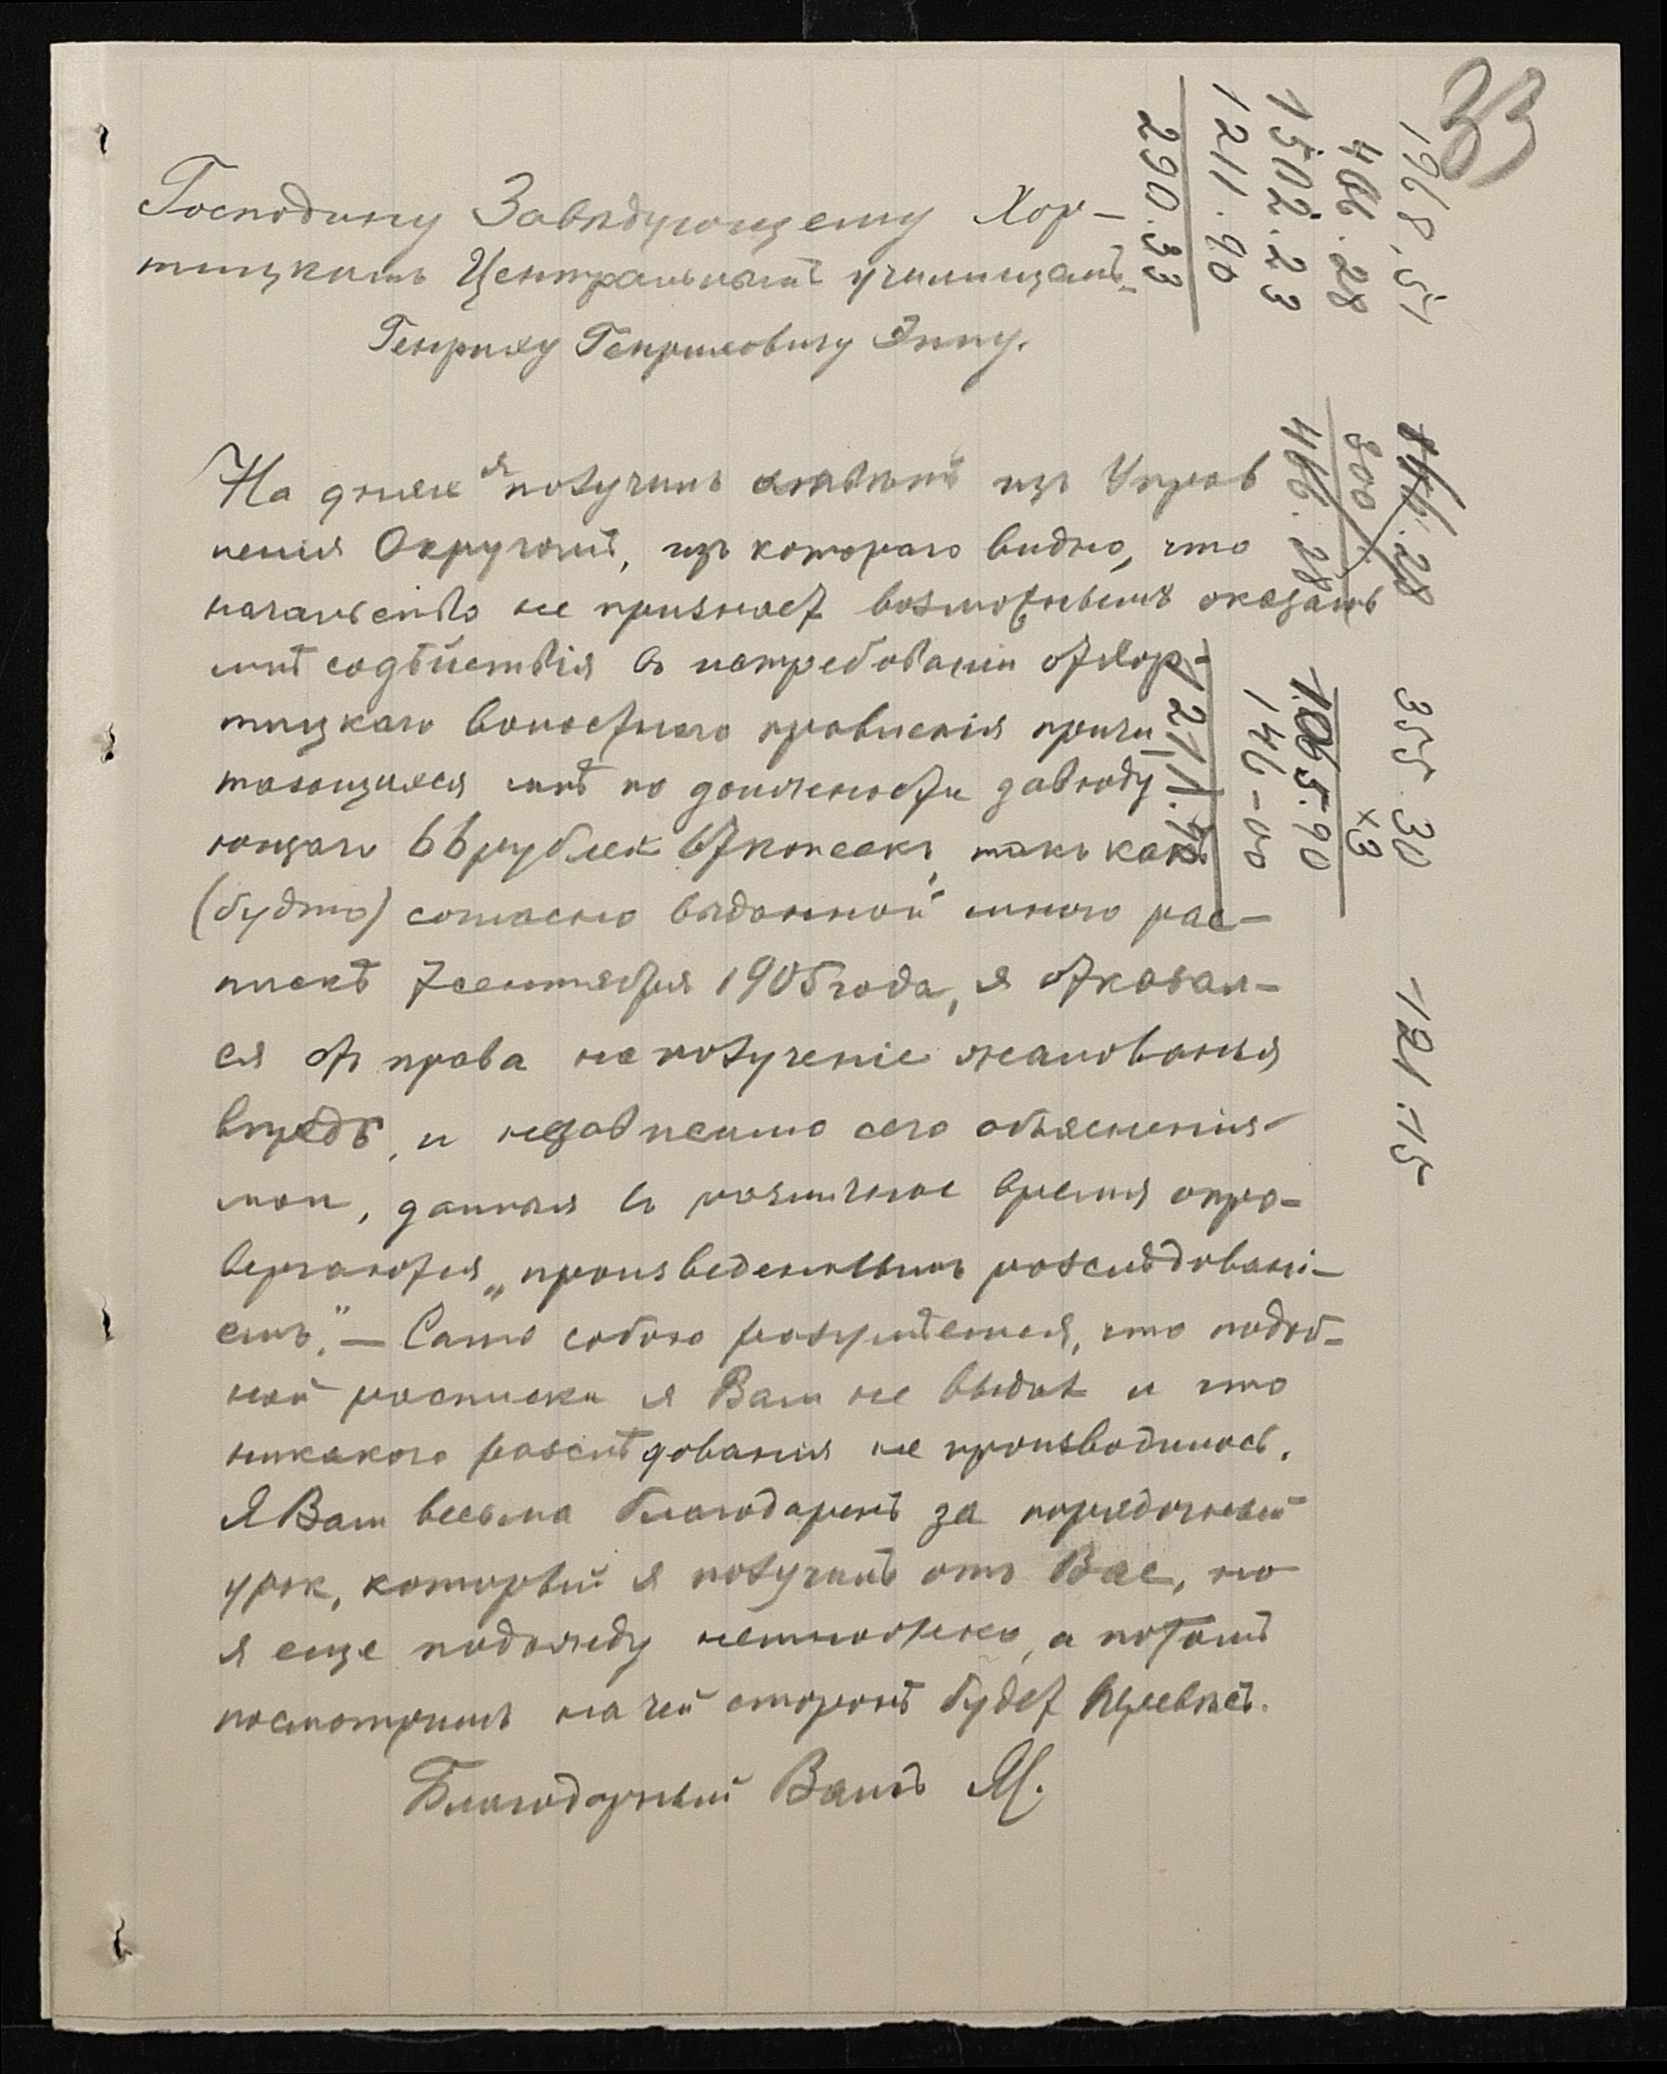 33
Господину Завѣдующему Хор-
тицкимъ Центральнымъ училищемъ
Генриху Генриховичу Эппу.
На дняхъ я получилъ отвѣтъ изъ Управ
ленія Округомъ, изъ котораго видно, что
начальство не признает возможнымъ оказать
мнѣ содѣйствія въ истребованіи от Хор-
тицкаго волостного правленія причи
тающихся мнѣ по должности завѣду
ющаго 66 рублей 67 копеекъ, такъ какъ
(будто) согласно выданной мною рас-
пискѣ 7 сентября 1905 года, я отказал-
ся от права на полученіе жалованья
впредь, и независимо сего объясненія
мои, данныя въ различное время опро-
вергаются „произведеннымъ разслѣдовані-
емъ." — Само собою разумѣется, что подоб-
ной расписки я Вам не выдал и что
никакого разслѣдованія не производилось.
Я Вам весьма благодаренъ за порядочный
урок, который я получилъ отъ Вас, но
я еще подожду немножко, а потомъ
посмотримъ на чей сторонѣ будет
Благодарный Вамъ
1968.51
466.28
1502.23
1211.90
290.33
800
466.28
355.30
×3
1065.90
146-00
1211.90
121.15